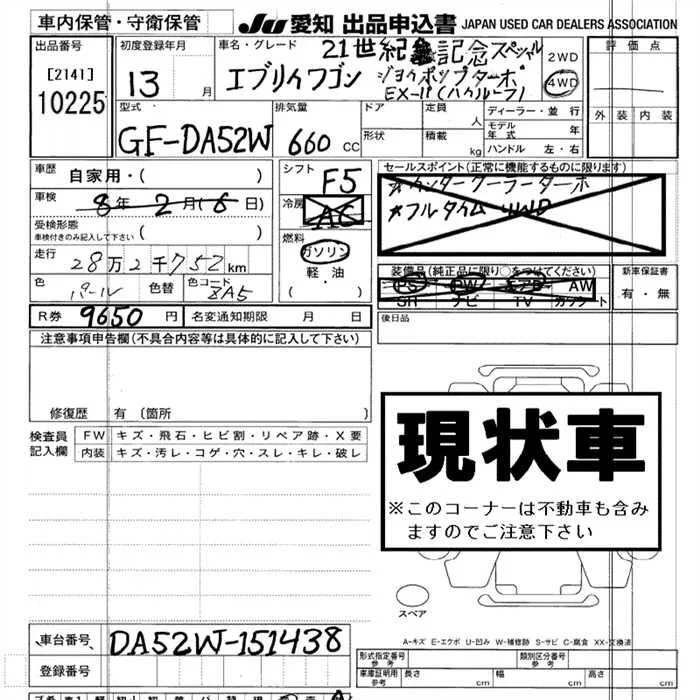 車内保管・守衛保管
Ju 愛知 出品申込書 JAPAN USED CAR DEALERS ASSOCIATION
出品番号
[2141]
10225
初度登録年月
13 月
車名・グレード
21世紀 記念スペシャル
エブリイワゴン ジョイポップターボ
EX-II(ハイルーフ)
2WD
4WD
評価点
外装 内装
型式
GF-DA52W
排気量
660 CC
ドア
形状
定員 人
積載 kg
ディーラー・並行
モデル年式 年
ハンドル 左・右
車歴 自家用・( )
車検 8年 2月(6日)
受検形態
車検付きのみ記入して下さい ( )
走行 28万2千752km
色 パール 色替 色コード
シフト F5
冷房 AC
燃料
ガソリン
軽・油
( ・ )
セールスポイント(正常に機能するものに限ります)
インタークーラーターボ
★フルタイム4WD
装備品(純正品に限り○をつけてください)
PS PW エアB AW
SR ナビ TV カワシート
新車保証書
有・無
R券 9650 円 名変通知期限 月 日
後日品
注意事項申告欄(不具合内容等は具体的に記入して下さい)
修復歴 有 〔箇所 〕
検査員記入欄
FW キズ・飛石・ヒビ割・リペア跡・X要
内装 キズ・汚レ・コゲ・穴・スレ・キレ・破レ
現状車
※このコーナーは不動車も含み
ますのでご注意下さい
スペア
A-キズ E-エクボ U-凹み W-補修跡 S-サビ C-腐食 XX-交換済
車台番号 DA52W-151438
登録番号
形式指定番号 参考
類別区分番号 参考
車庫証明用 参考 長さ cm 幅 cm 高さ cm